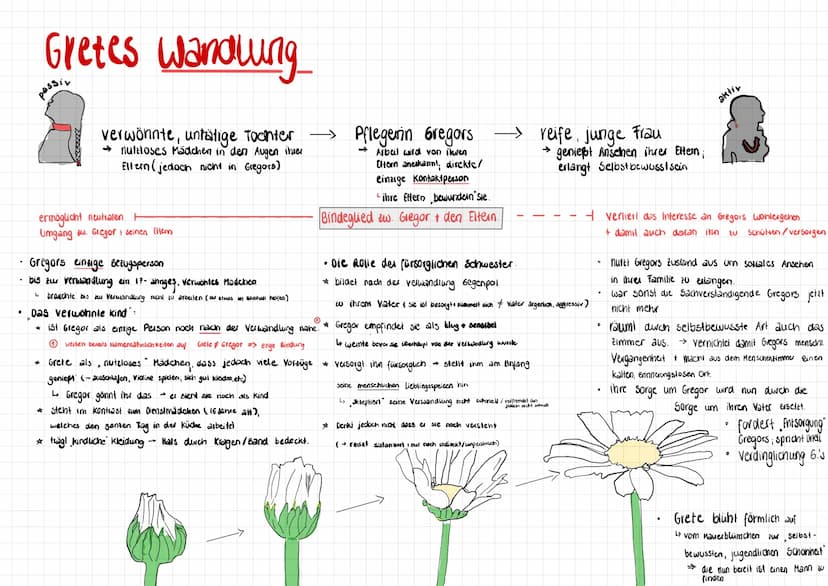 Gretes Wandlung
passiv
aktiv
verwöhnte, untätige Tochter → Pflegerin Gregors → reife, junge Frau
→ nutzloses Mädchen in den Augen ihrer
Eltern (jedoch nicht in Gregors)
→ Arbeit wird von ihren
Eltern anerkannt; direkte/
einzige Kontaktperson
↳ ihre Eltern „bewundern" sie
→ genießt Ansehen ihrer Eltern;
erlangt Selbstbewusstsein
ermöglicht neutralen
Umgang zw. Gregor + seinen Eltern
Bindeglied zw. Gregor + den Eltern
verliert das Interesse an Gregors Wohlergehen
+ damit auch daran ihn zu schützen/versorgen
· Gregors einzige Bezugsperson
· bis zur Verwandlung ein 17-jähriges, verwöhntes Mädchen
↳ brauchte bis zur Verwandlung nicht zu arbeiten
· „Das verwöhnte Kind":
* ist Gregor als einzige Person noch nach der Verwandlung nahe
weisen bereits Namensähnlichkeiten auf Grete & Gregor ⇒ enge Bindung
* Grete als „nutzloses" Mädchen, dass jedoch viele Vorzüge
genießt (→ ausschlafen, Violine spielen, sich gut kleiden, etc)
↳ Gregor gönnt ihr das → er sieht sie noch als Kind
* steht im Kontrast zum Dienstmädchen (16 Jahre alt),
welches den ganzen Tag in der Küche arbeitet
* trägt „kindliche" Kleidung → Hals durch Kragen/Band bedeckt.
· Die Rolle der fürsorglichen Schwester:
* bildet nach der Verwandlung Gegenpol
zu ihrem Vater (sie ist besorgt + kümmert sich ≠ Vater ärgerlich, aggressiv)
* Gregor empfindet sie als klug + sensibel
↳ weinte bevor sie überhaupt von der Verwandlung wusste
* versorgt ihn fürsorglich → stellt ihm am Anfang
seine menschlichen Lieblingsspeisen hin
↳ „akzeptiert" seine Verwandlung nicht schnell/
* Denkt jedoch nicht dass er sie noch versteht
(→ redet distanziert + nur noch indirekt/unpersönlich)
· nutzt Gregors Zustand aus um soziales Ansehen
in ihrer Familie zu erlangen.
· war sonst die Sachverständigende Gregors jetzt
nicht mehr
· räumt durch selbstbewusste Art auch das
Zimmer aus. → vernichtet damit Gregors menschl.
Vergangenheit + macht aus dem Menschenzimmer einen
kalten, erinnerungslosen Ort.
· ihre Sorge um Gregor wird nun durch die
Sorge um ihren Vater ersetzt.
· fordert „Entsorgung"
Gregors; spricht
· Verdinglichung G.'s
· Grete blüht förmlich auf
↳ vom Mauerblümchen zur „selbst-
bewussten, jugendlichen Schönheit"
⇒ die nun bereit ist einen Mann zu
finden